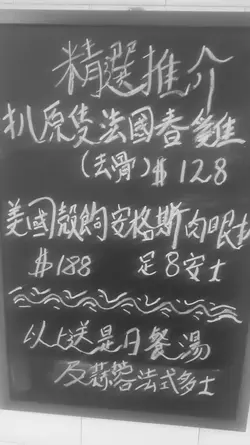 精選推介
扒原隻法國春雞
(去骨) $128
美國殼飼安格斯肉眼扒
$188 足8安士
以上送是日餐湯
及蒜蓉法式多士